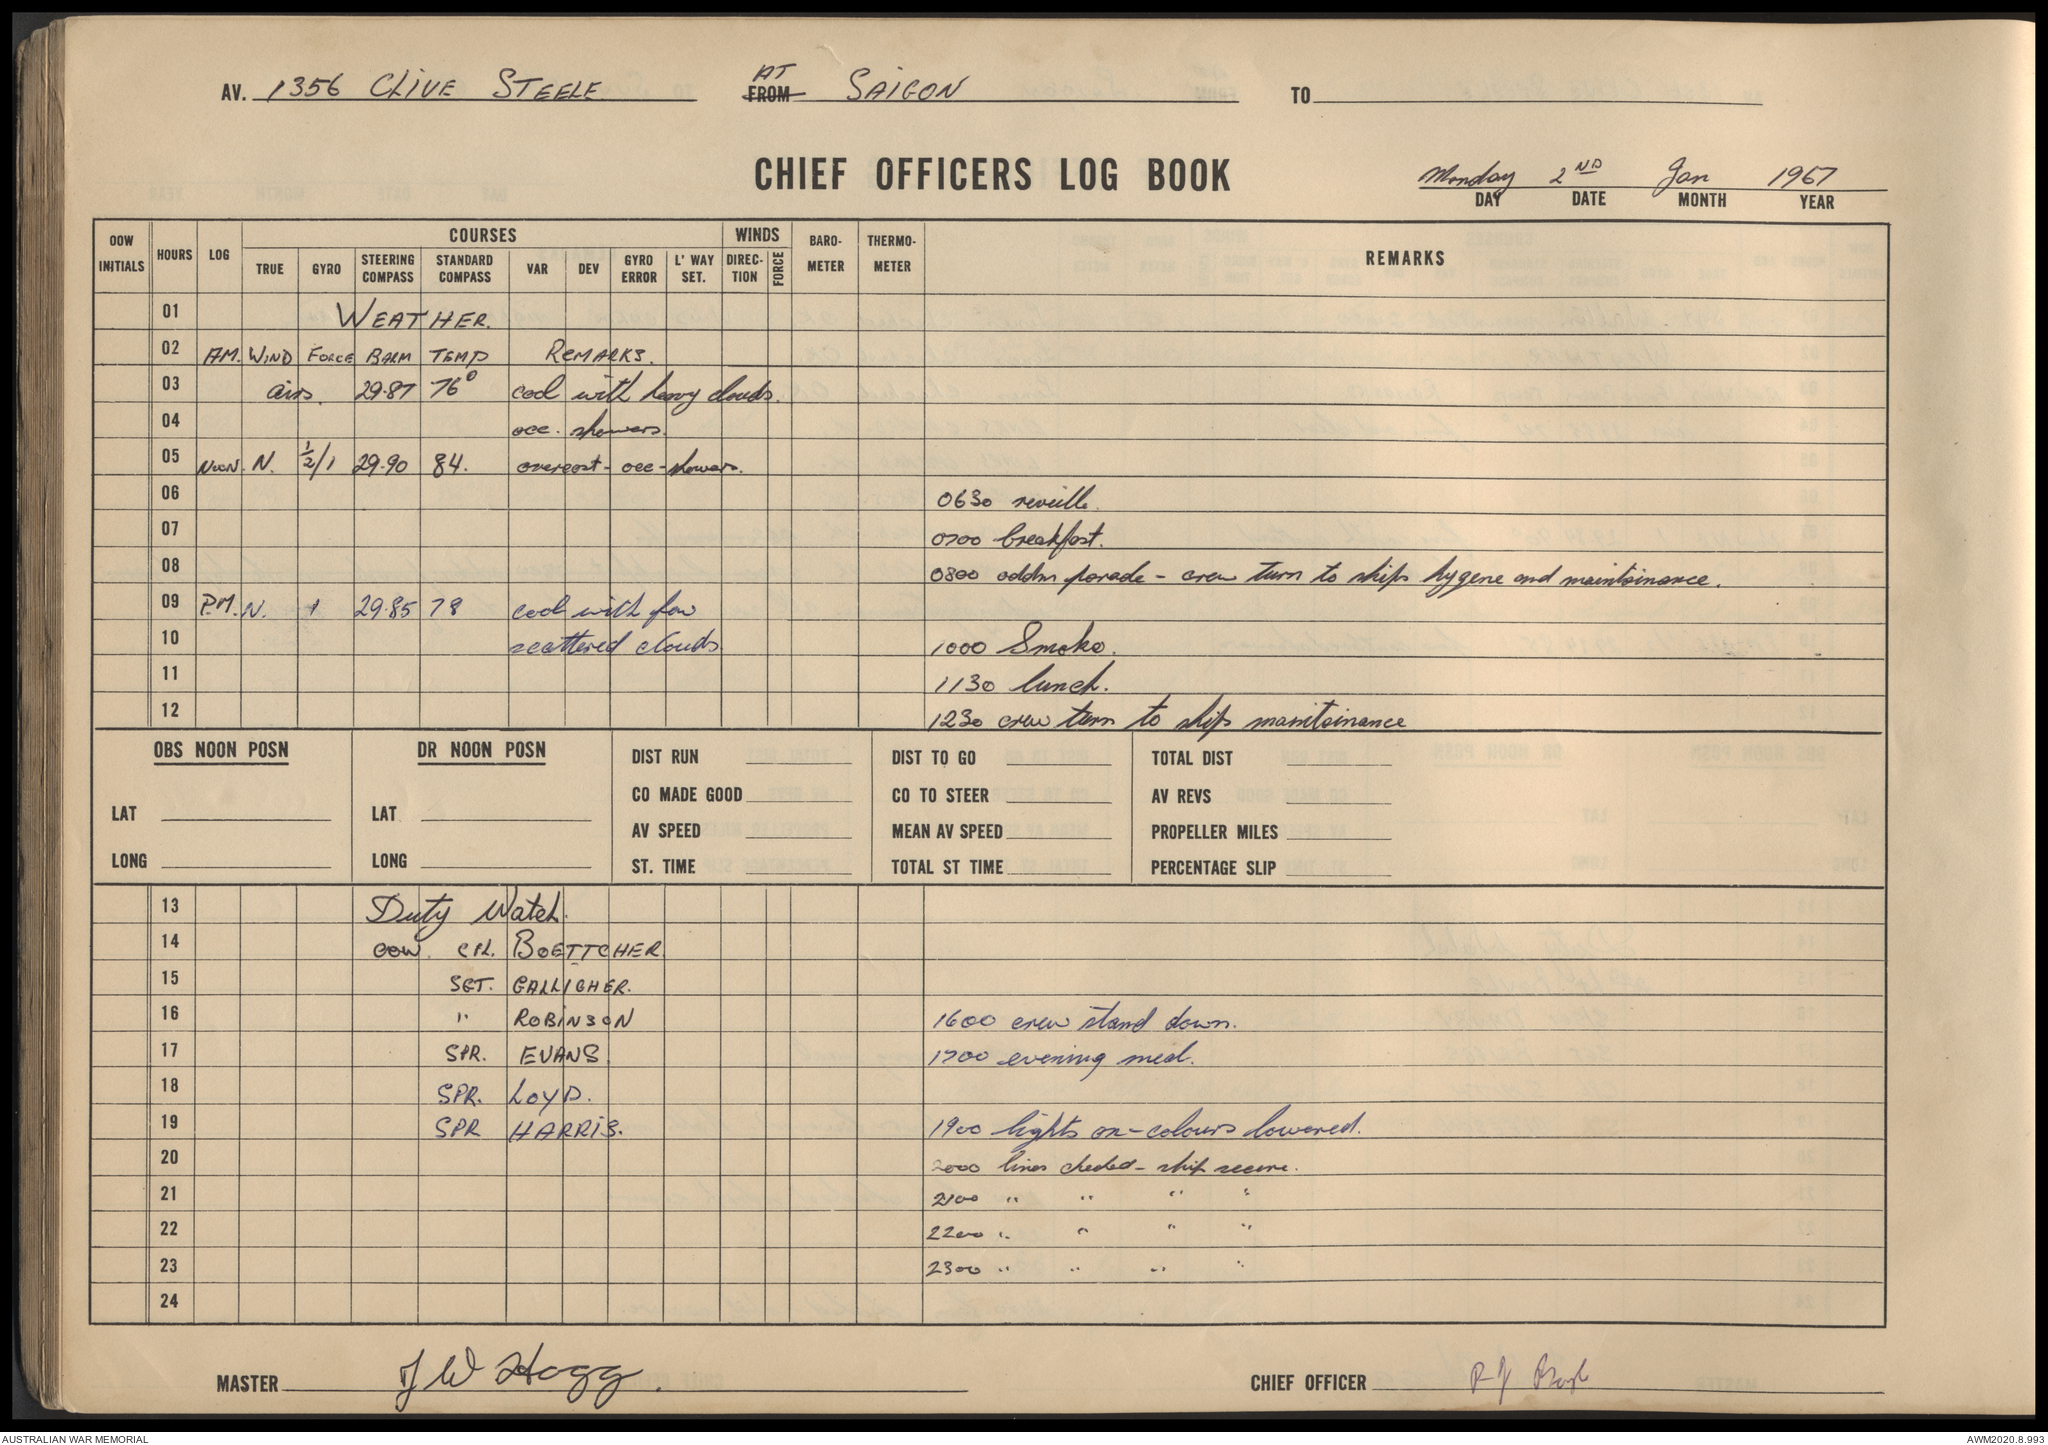 AV. 1356 CLIVE STEELE AT FROM SAIGON TO
CHIEF OFFICERS LOG BOOK
Monday 2ND Jan 1967
DAY DATE MONTH YEAR
OOW INITIALS HOURS LOG COURSES WINDS BARO-METER THERMO-METER REMARKS
TRUE GYRO STEERING COMPASS STANDARD COMPASS VAR DEV GYRO ERROR L' WAY SET. DIREC-TION FORCE
01 WEATHER.
02 A.M. WIND FORCE BARM TEMP REMARKS.
03 airs. 29.87 76° cool with heavy clouds.
04 occ. showers.
05 NOON N. 1/2/1 29.90 84. overcast - occ - showers.
06 0630 reveille.
07 0700 breakfast.
08 0800 addm parade - crew turn to ships hygene and maintainance.
09 P.M. N. 1 29.85 78 cool with few
10 scattered clouds 1000 Smoko.
11 1130 lunch.
12 1230 crew turn to ships maintainance
OBS NOON POSN DR NOON POSN DIST RUN DIST TO GO TOTAL DIST
CO MADE GOOD CO TO STEER AV REVS
LAT LAT AV SPEED MEAN AV SPEED PROPELLER MILES
LONG LONG ST. TIME TOTAL ST TIME PERCENTAGE SLIP
13 Duty Watch.
14 OOW. CPL. BOETTCHER
15 SGT. GALLIGHER.
16 " ROBINSON 1600 crew stand down.
17 SPR. EVANS. 1700 evening meal.
18 SPR. LOYD.
19 SPR HARRIS. 1900 lights on - colours lowered.
20 2000 lines checked - ship secure.
21 2100 " " " "
22 2200 " " " "
23 2300 " " " "
24
MASTER J W Hogg. CHIEF OFFICER
AUSTRALIAN WAR MEMORIAL AWM2020.8.993